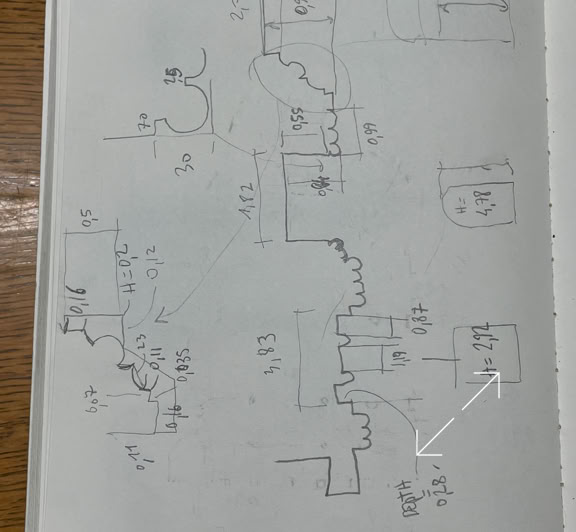 30
0,55
0,99
1,82
0,5
0,16
H=0,2
0,12
H=
4,78
0,87
1,19
3,83
H=2,92
23
0,11
0,035
0,16
0,11
DEPTH
0,28